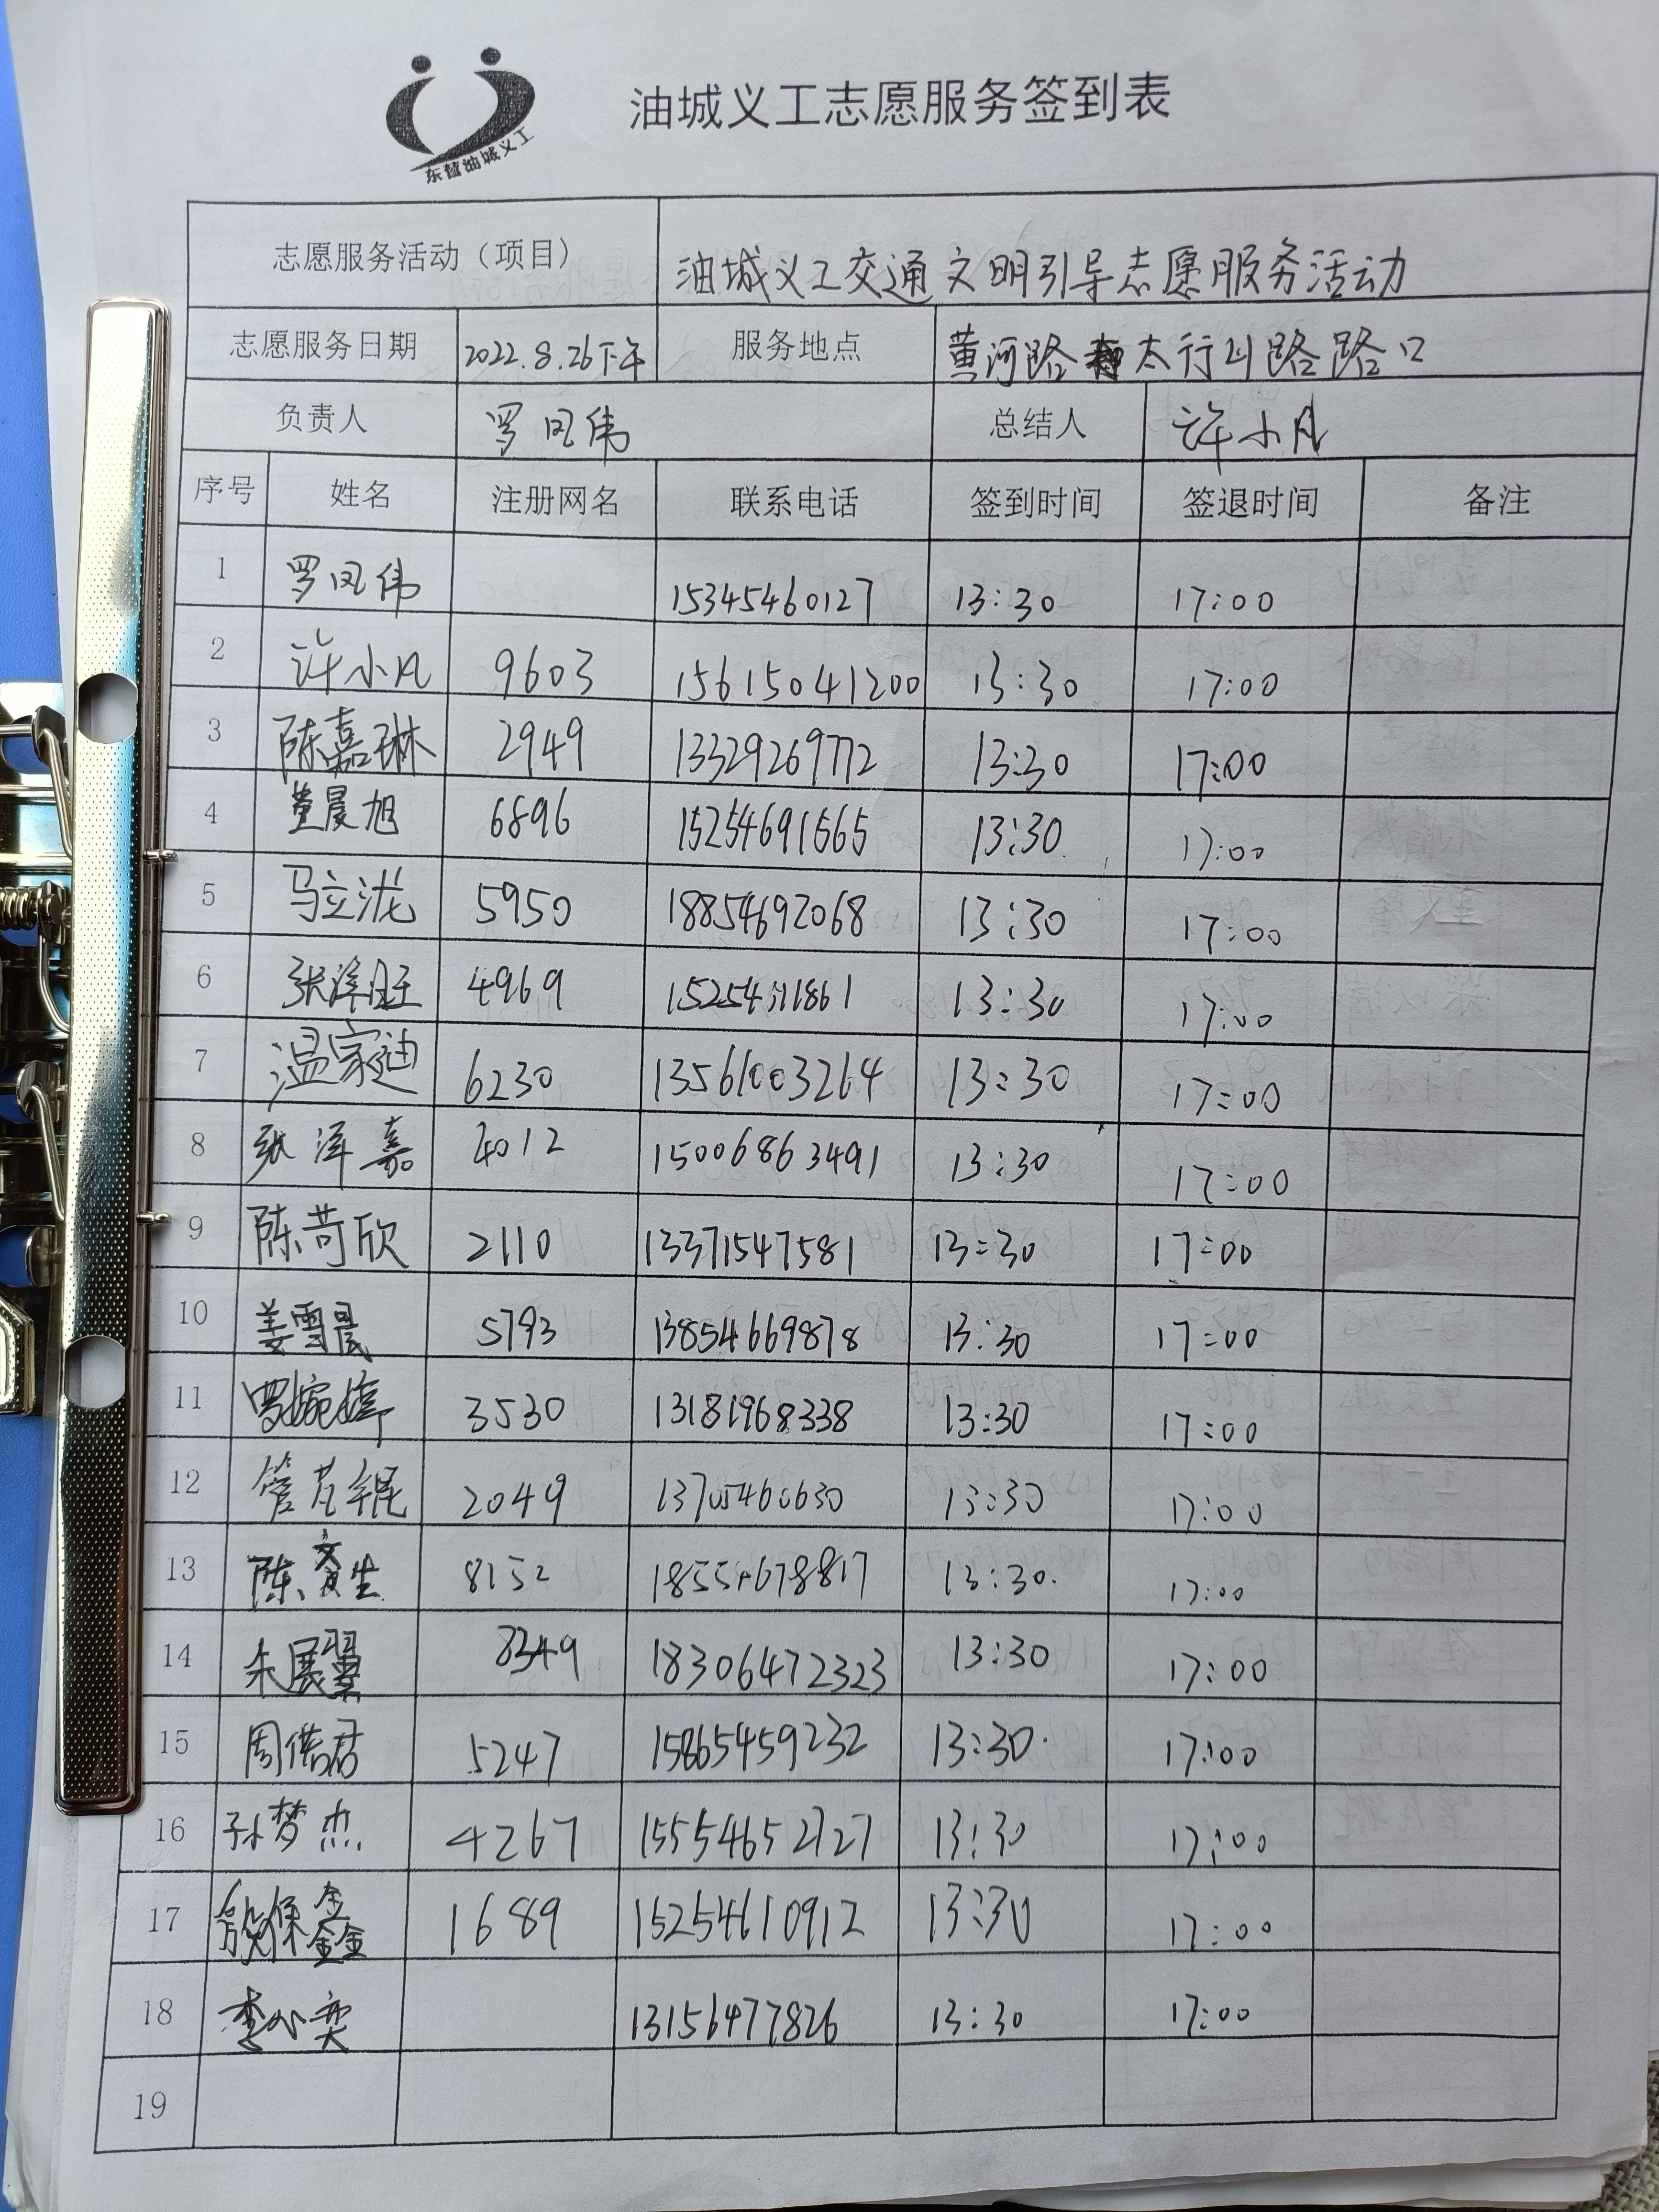 东营油城义工
油城义工志愿服务签到表
志愿服务活动（项目） 油城义工交通文明引导志愿服务活动
志愿服务日期 2022.8.26下午 服务地点 黄河路太行山路路口
负责人 罗凤伟 总结人 许小凡
序号 姓名 注册网名 联系电话 签到时间 签退时间 备注
1 罗凤伟 15345460127 13:30 17:00
2 许小凡 9603 15615041200 13:30 17:00
3 陈嘉琳 2949 13329269772 13:30 17:00
4 董晨旭 6896 15254691665 13:30 17:00
5 马立泷 5950 18854692068 13:30 17:00
6 张泽旺 4969 13:30 17:00
7 温家迪 6230 13561003264 13:30 17:00
8 张泽嘉 4012 15006863491 13:30 17:00
9 陈苛欣 2110 13371547581 13:30 17:00
10 姜雪晨 5793 13854669878 13:30 17:00
11 罗婉婷 3530 13181968338 13:30 17:00
12 管芃锟 2049 13705460630 13:30 17:00
13 8152 13:30 17:00
14 朱展翼 8349 18306472323 13:30 17:00
15 5247 15865459232 13:30 17:00
16 孙梦杰 4267 15554652727 13:30 17:00
17 1689 15254610912 13:30 17:00
18 13156477826 13:30 17:00
19